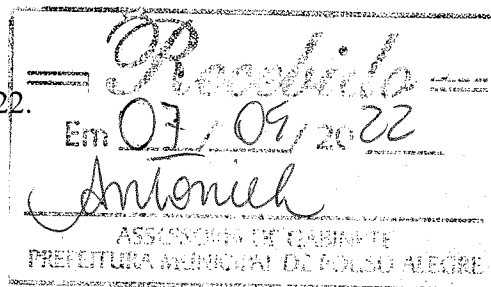 Recebido
22.
Em 07/04/2022
ASSESSORIA DE GABINETE
PREFEITURA MUNICIPAL DE POUSO ALEGRE